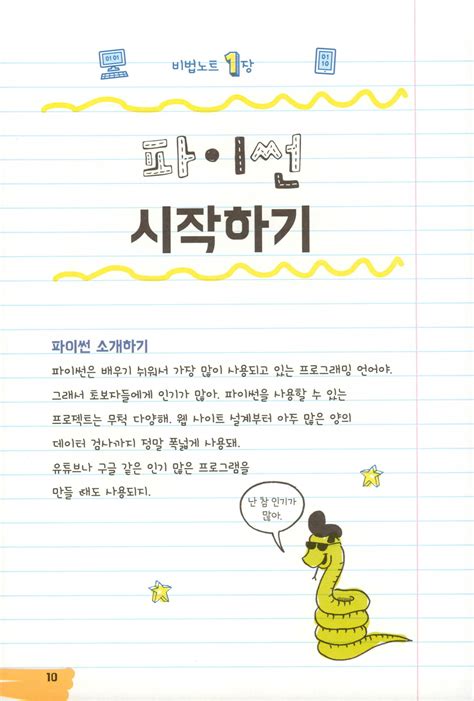 0101
비법노트 1장
01
10
파이썬
시작하기
파이썬 소개하기
파이썬은 배우기 쉬워서 가장 많이 사용되고 있는 프로그래밍 언어야.
그래서 초보자들에게 인기가 많아. 파이썬을 사용할 수 있는
프로젝트는 무척 다양해. 웹 사이트 설계부터 아주 많은 양의
데이터 검사까지 정말 폭넓게 사용돼.
유튜브나 구글 같은 인기 많은 프로그램을
만들 때도 사용되지.
난 참 인기가
많아.
10